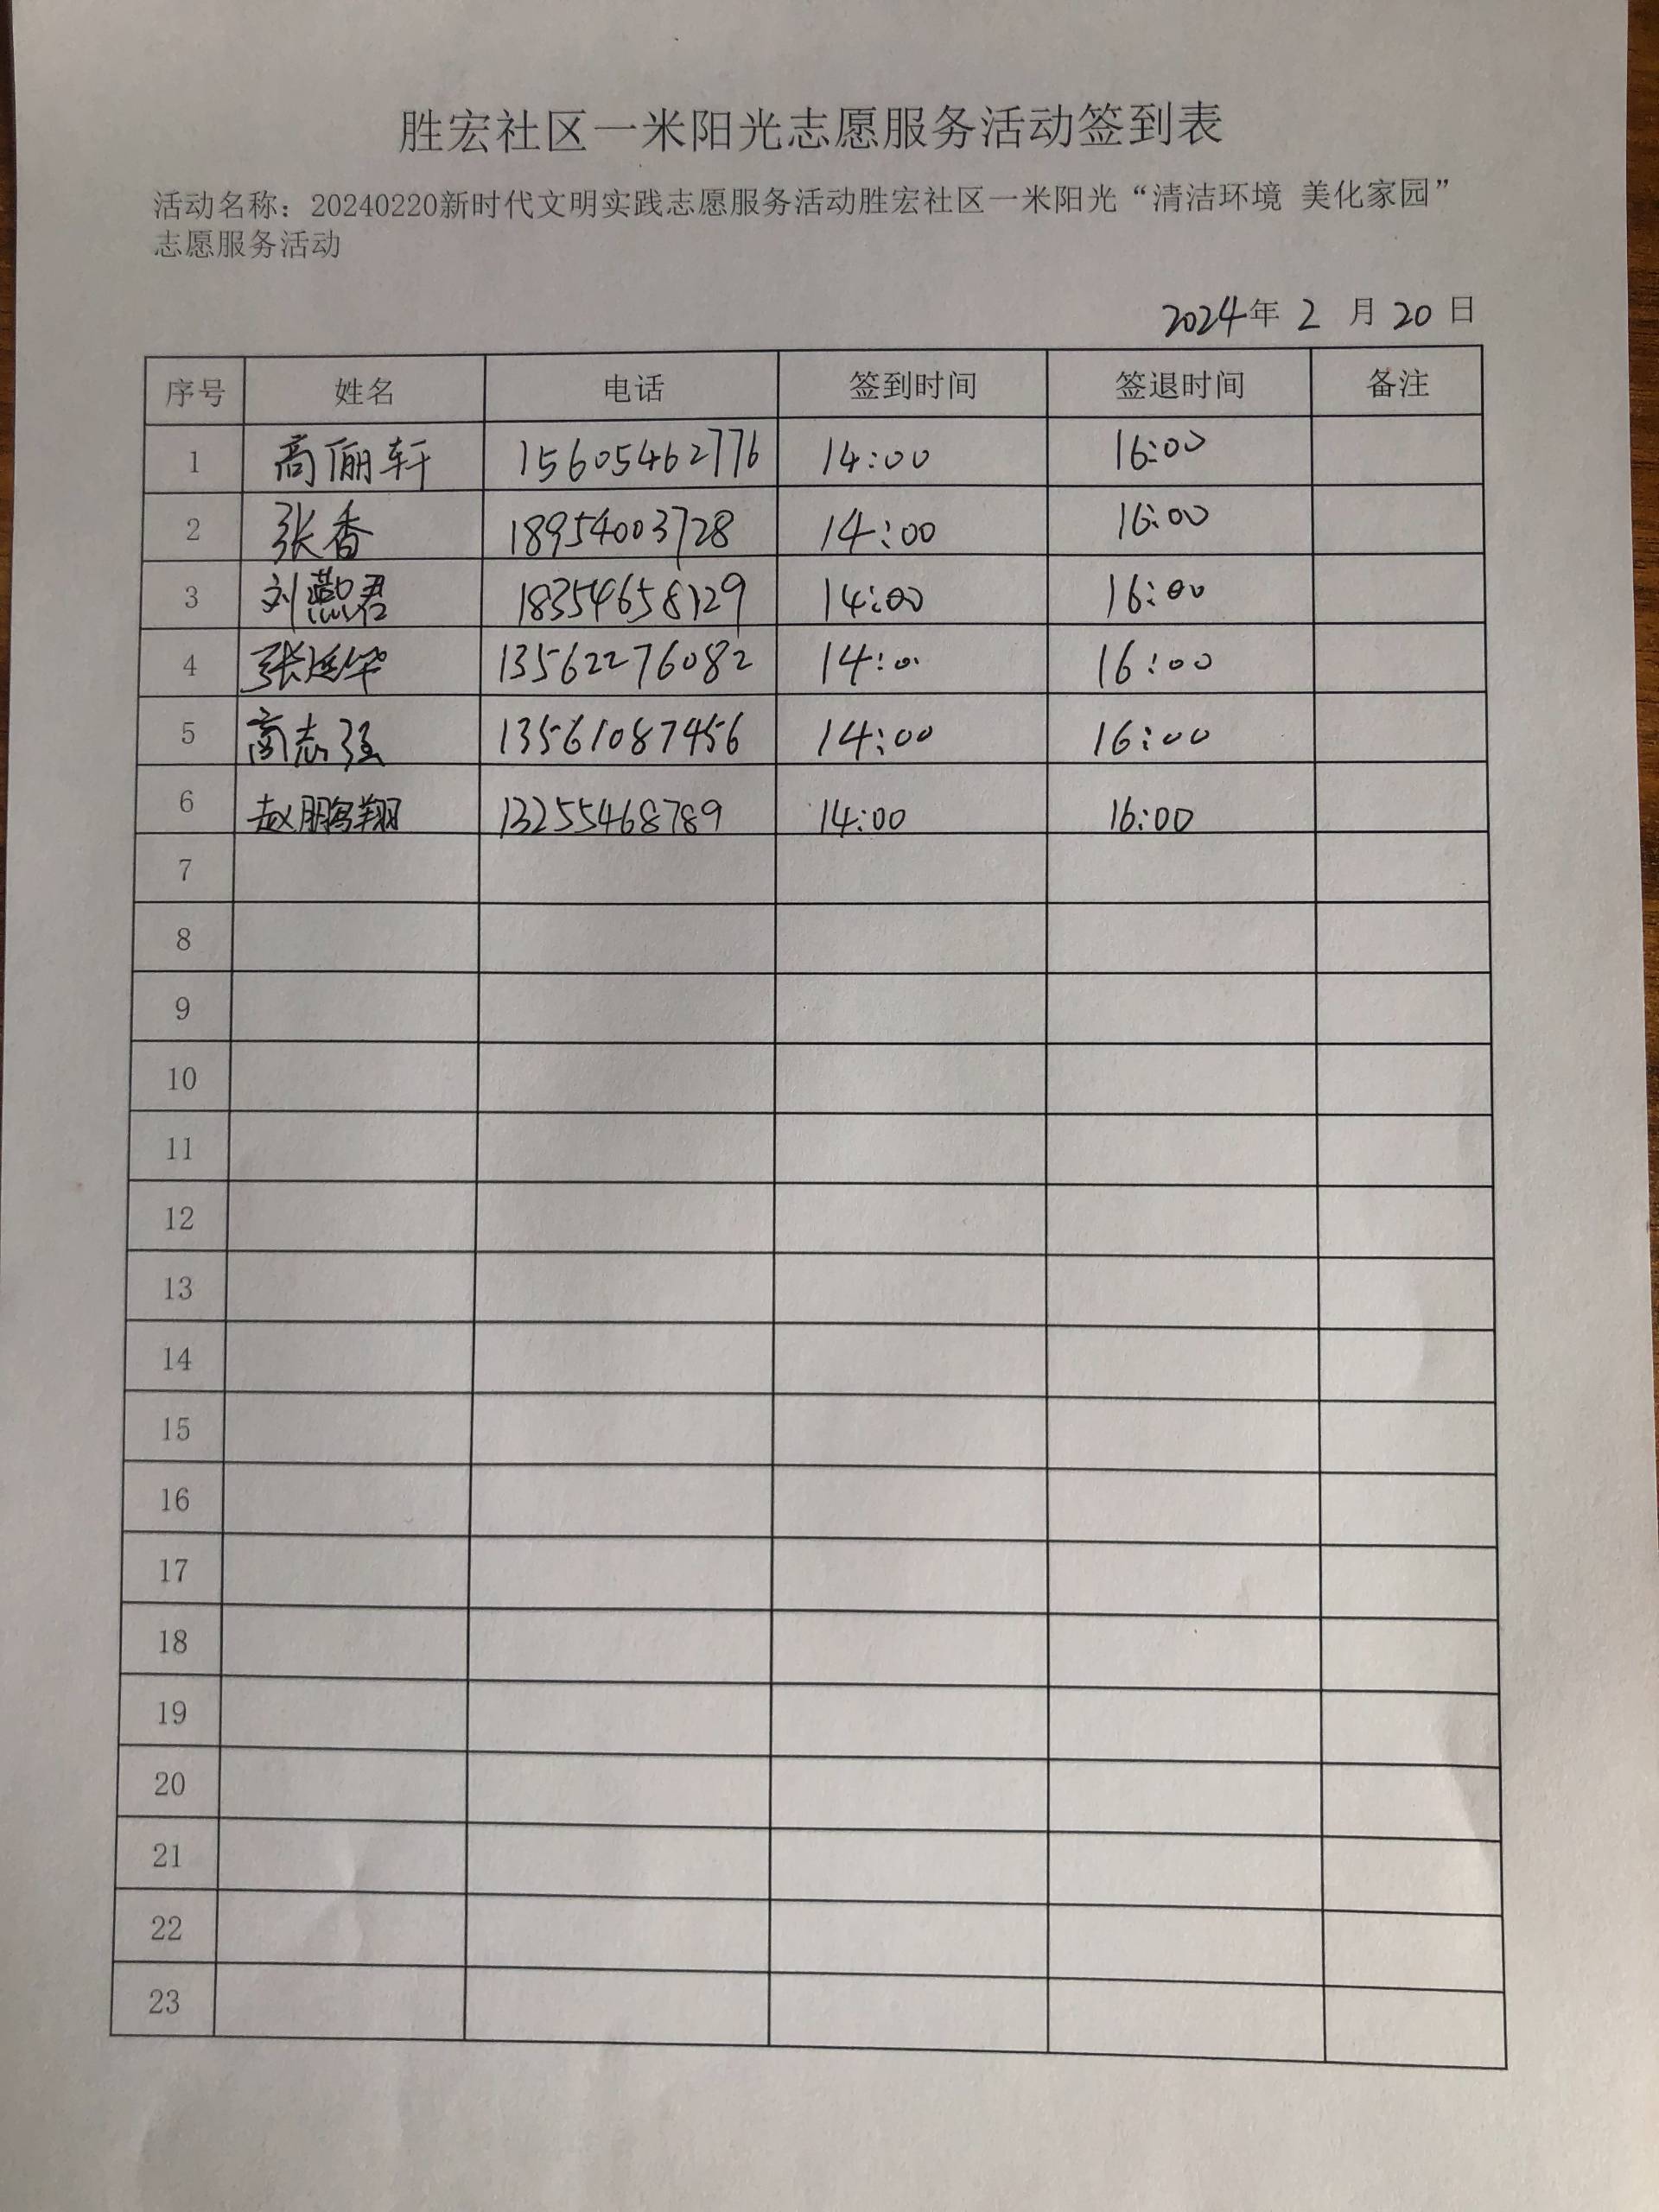 胜宏社区一米阳光志愿服务活动签到表
活动名称：20240220新时代文明实践志愿服务活动胜宏社区一米阳光“清洁环境 美化家园”
志愿服务活动
2024年 2 月 20 日
序号 姓名 电话 签到时间 签退时间 备注
1 高俪轩 15605462776 14:00 16:00
2 张香 18954003728 14:00 16:00
3 刘燕君 18354658129 14:00 16:00
4 张延华 13562276082 14:0 16:00
5 商志强 13561087456 14:00 16:00
6 赵鹏翔 13255468789 14:00 16:00
7
8
9
10
11
12
13
14
15
16
17
18
19
20
21
22
23